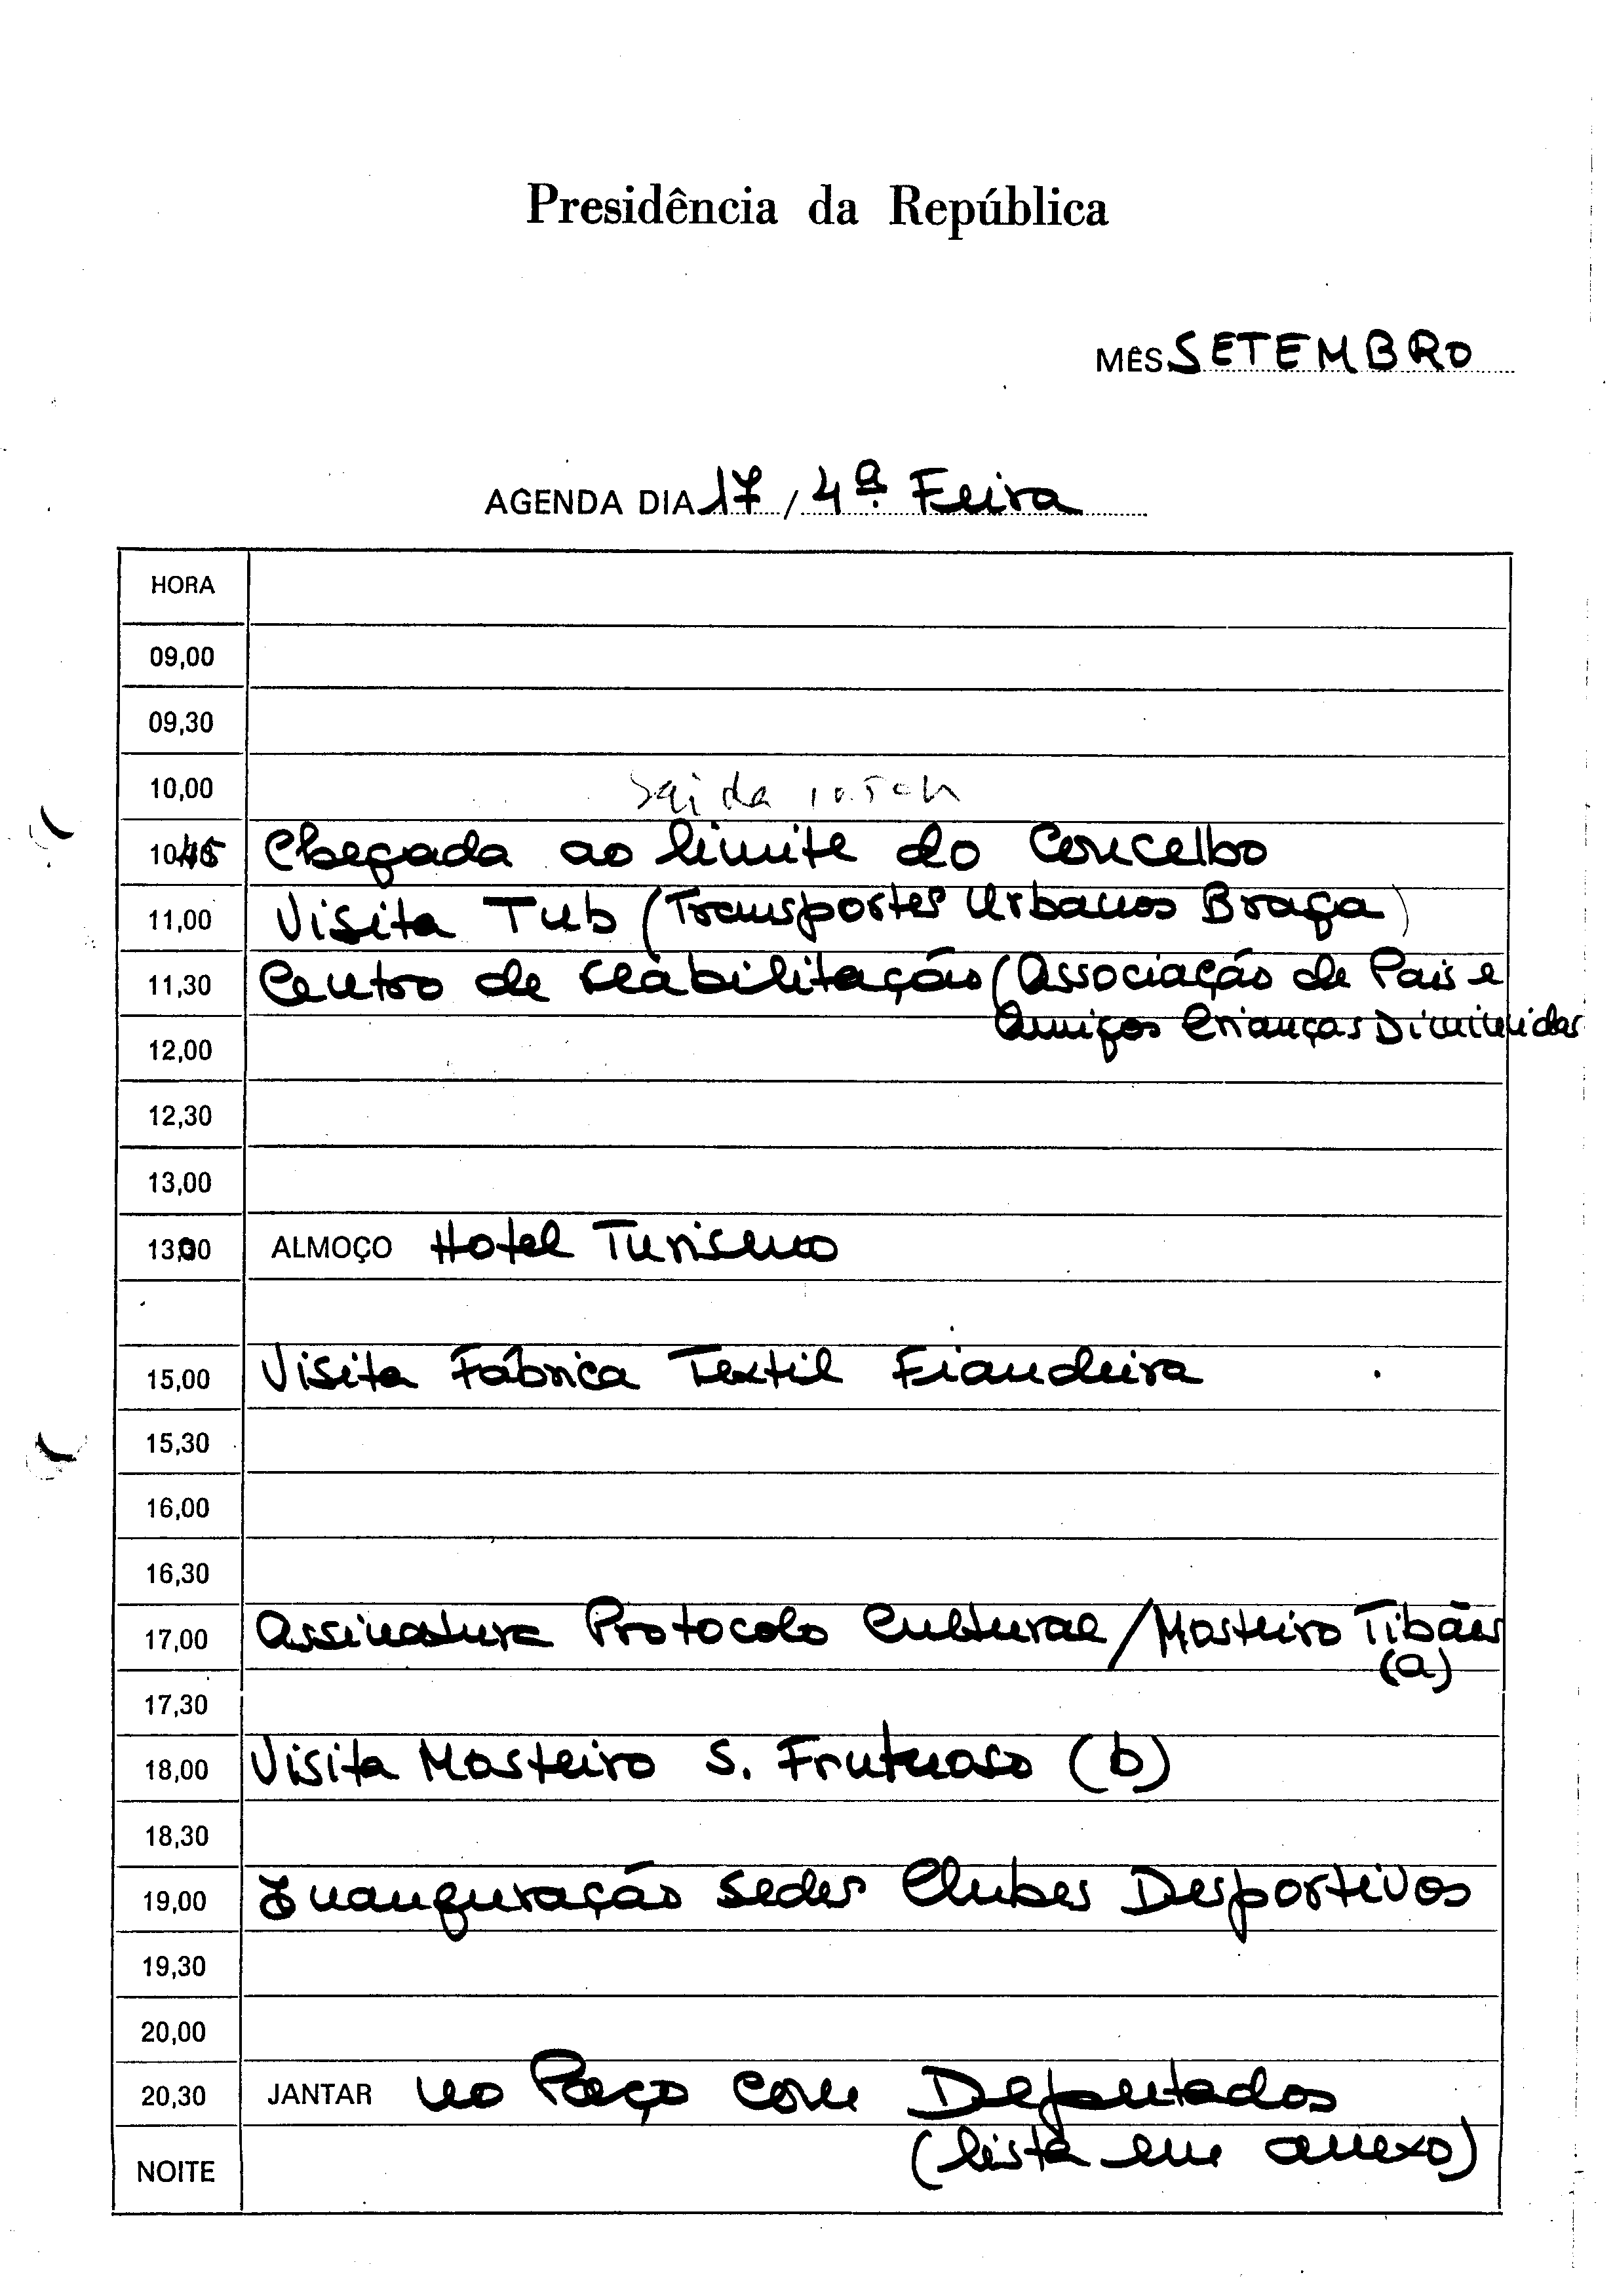 Presidência da República
MÊS SETEMBRO
AGENDA DIA 17 / 4ª Feira
HORA
09,00
09,30
10,00 Saida 10.50h
10,45 Chegada ao limite do Concelho
11,00 Visita Tub (Transportes Urbanos Braga)
11,30 Centro de reabilitação (Associação de Pais e
Amigos Crianças Diminuidas
12,00
12,30
13,00
13,00 ALMOÇO Hotel Turismo
15,00 Visita Fábrica Textil Fiandeira
15,30
16,00
16,30
17,00 Assinatura Protocolo Cultural / Mosteiro Tibães
(a)
17,30
18,00 Visita Mosteiro S. Frutuoso (b)
18,30
19,00 Inauguração sedes Clubes Desportivos
19,30
20,00
20,30 JANTAR no Paço com Deputados
(lista em anexo)
NOITE